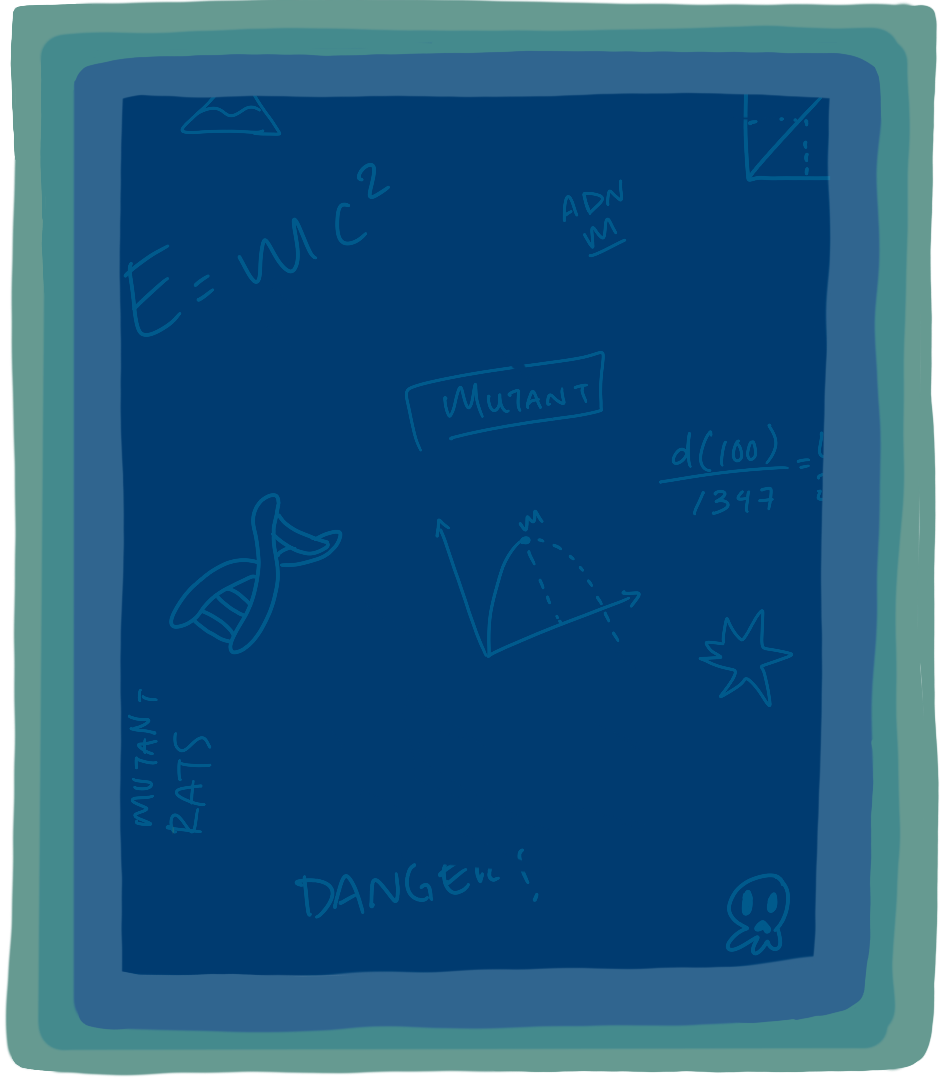 E = mc²
ADN
m
MUTANT
d(100)
1347
=
m
MUTANT
RATS
DANGER!